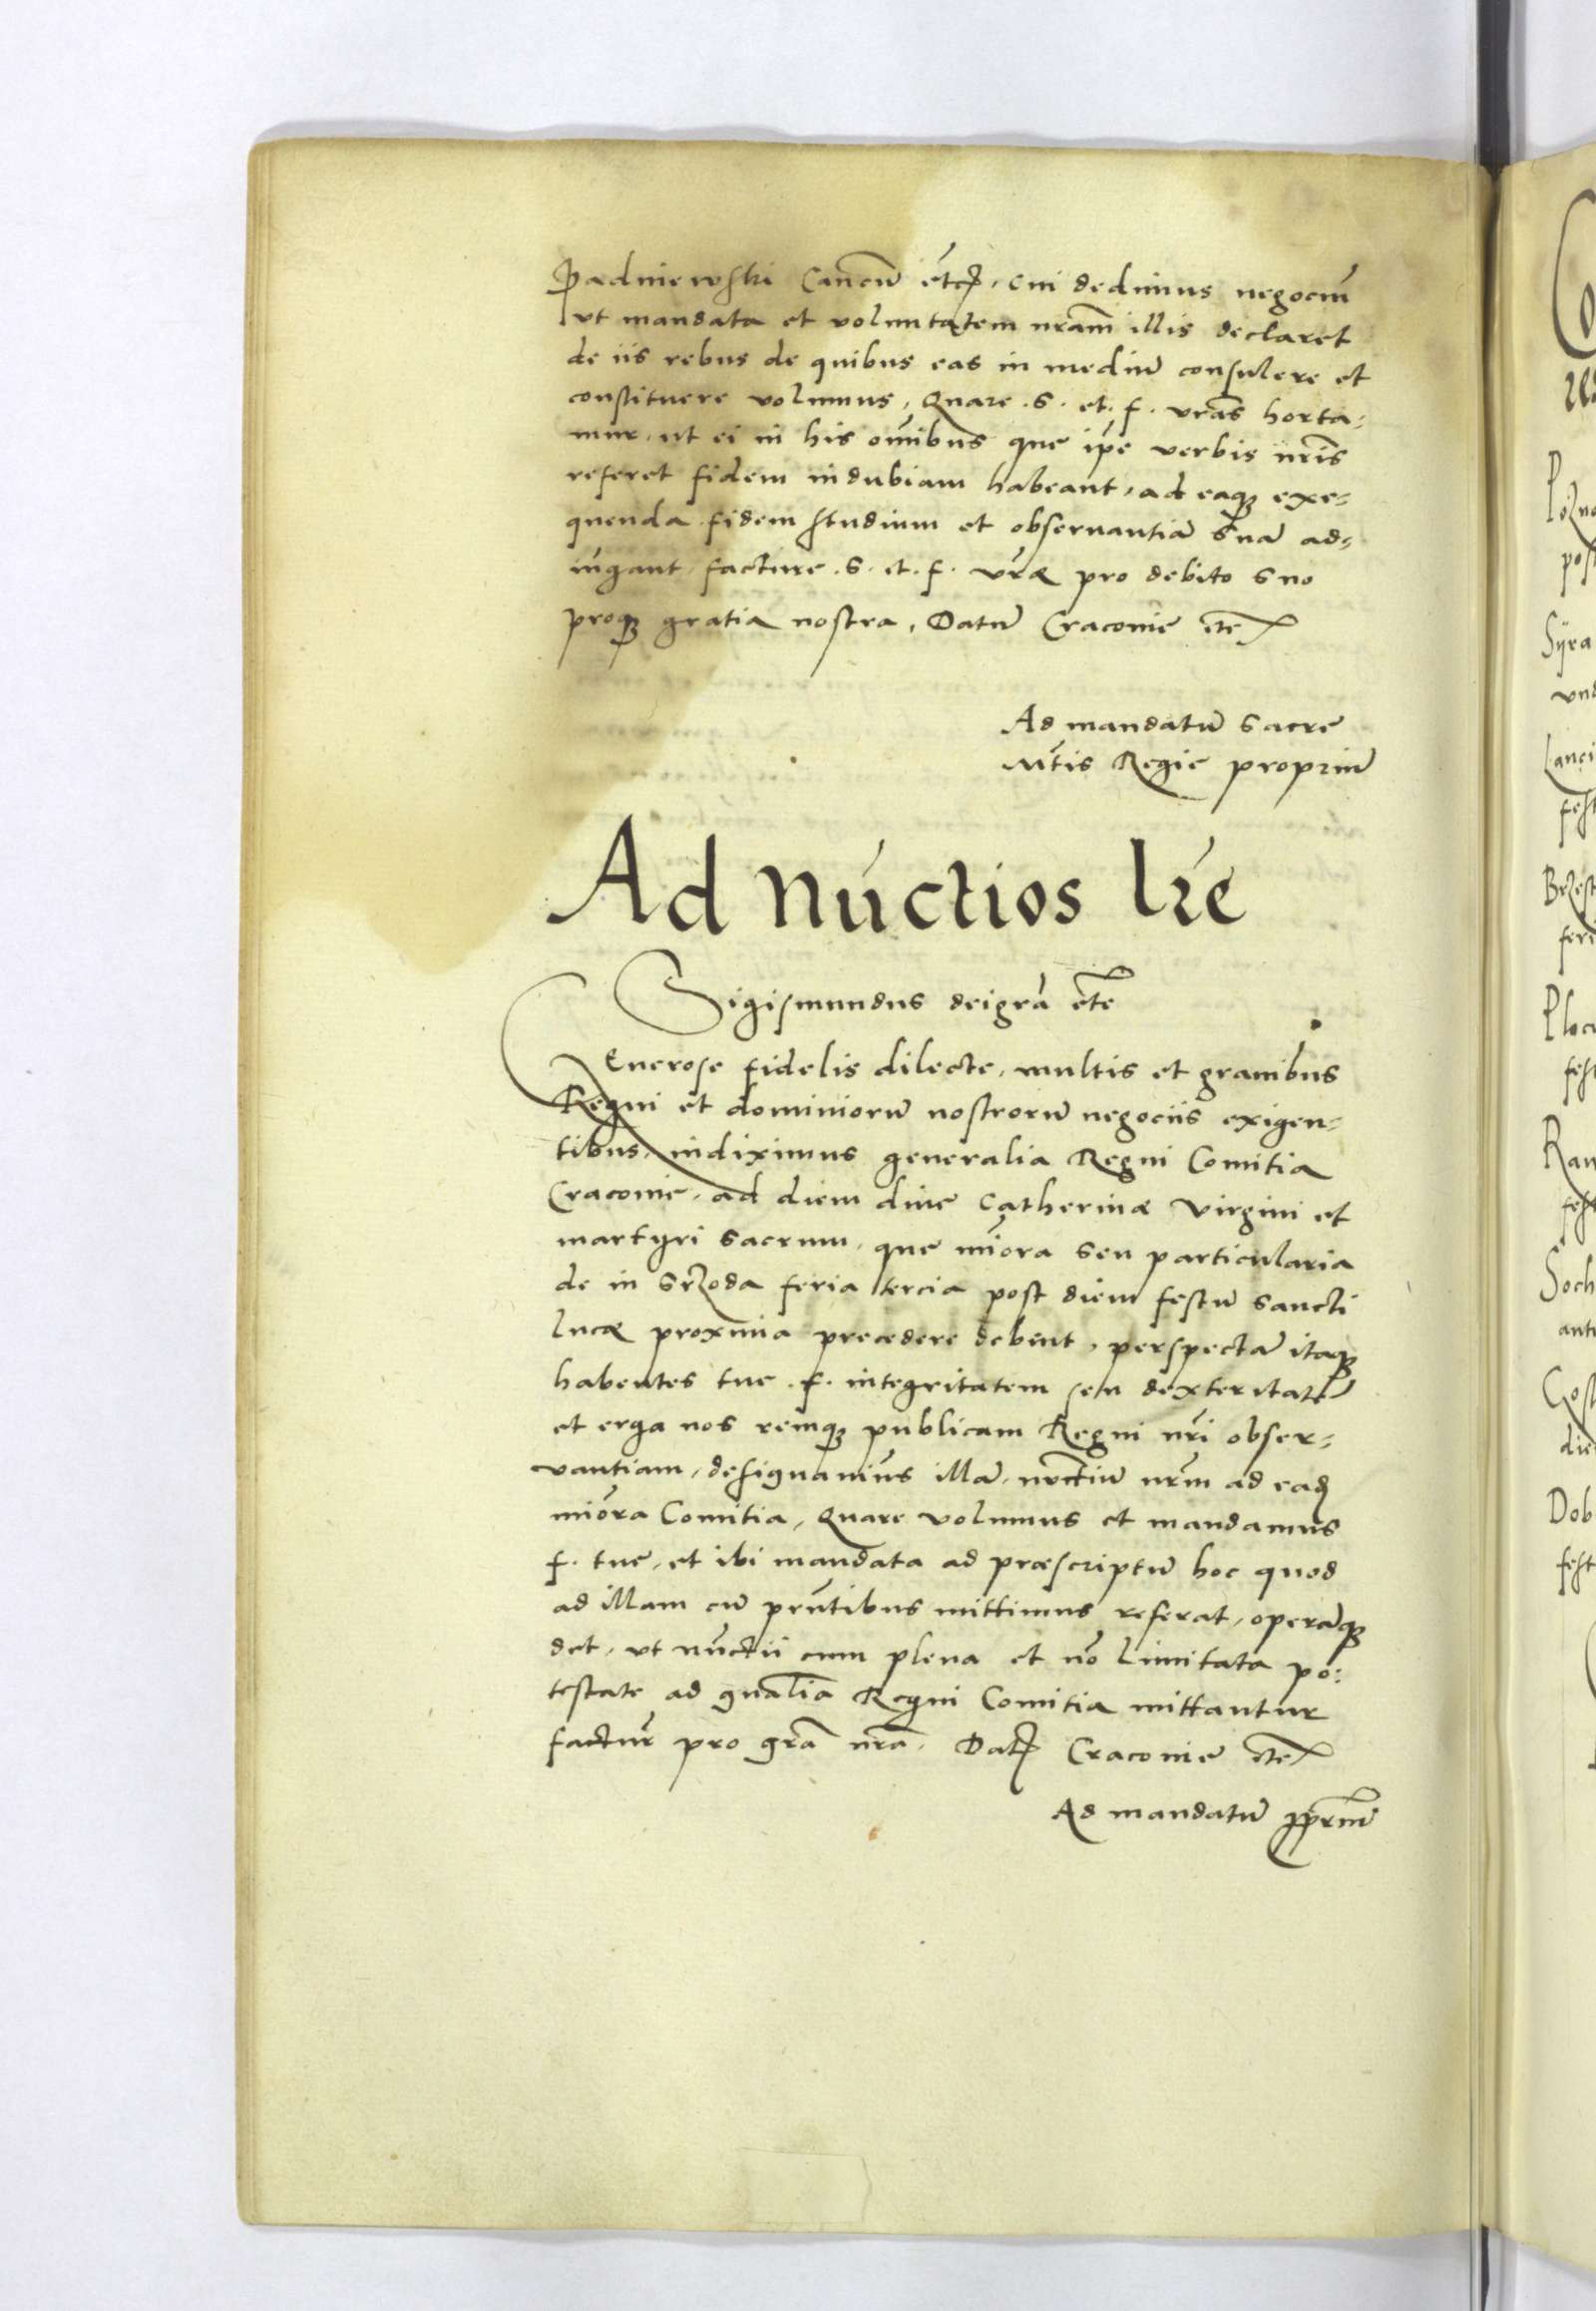 Padniewski Canc̄m̄ et̄c, cui dedimus negociū
vt mandata et voluntatem nrām illis declaret
de iis rebus de quibus eas in mediū consulere et
constituere volumus, Quare .S. et. f. vrās horta-
mur, ut ei in his oībus que ip̄e verbis nrīs
referet fidem indubiam habeant, ad eaq; exe-
quenda fidem studium et obseruantiā suā ad-
iūgant, facture .S. et. f. vræ pro debito suo
proq; gratia nostra, Datū Craconie etc
Ad mandatū Sacre
Mt̄is Regie propriū
Ad Núctios lr̄e
Sigismundus dei grā etc̄
Generose fidelis dilecte, multis et grauibus
Regni et dominiorū nostrorū negociis exigen-
tibus, indiximus generalia Regni Comitia
Craconie, ad diem diue Catherinæ Virgini et
martyri sacrum, que mīora seu particularia
de in Srzoda feria tercia post diem festū sancti
lucæ proxima precedere debent, perspectā itaq;
habentes tue .f. integritatem seu dexteritatē
et erga nos remq; publicam Regni nrī obser-
uantiam, designauimus illā nūctiū nrm̄ ad ead
miōra Comitia, Quare volumus et mandamus
f. tue, et ibi mandata ad præscriptū hoc quod
ad illam cū prn̄tibus mittimus referat, operāq;
det, vt nūctii cum plena et nō limitata po-
testate ad gnalīa Regni Comitia mittantur
factur̄ pro grā nrā. Dat Craconie etc
Ad mandatū pprium̄